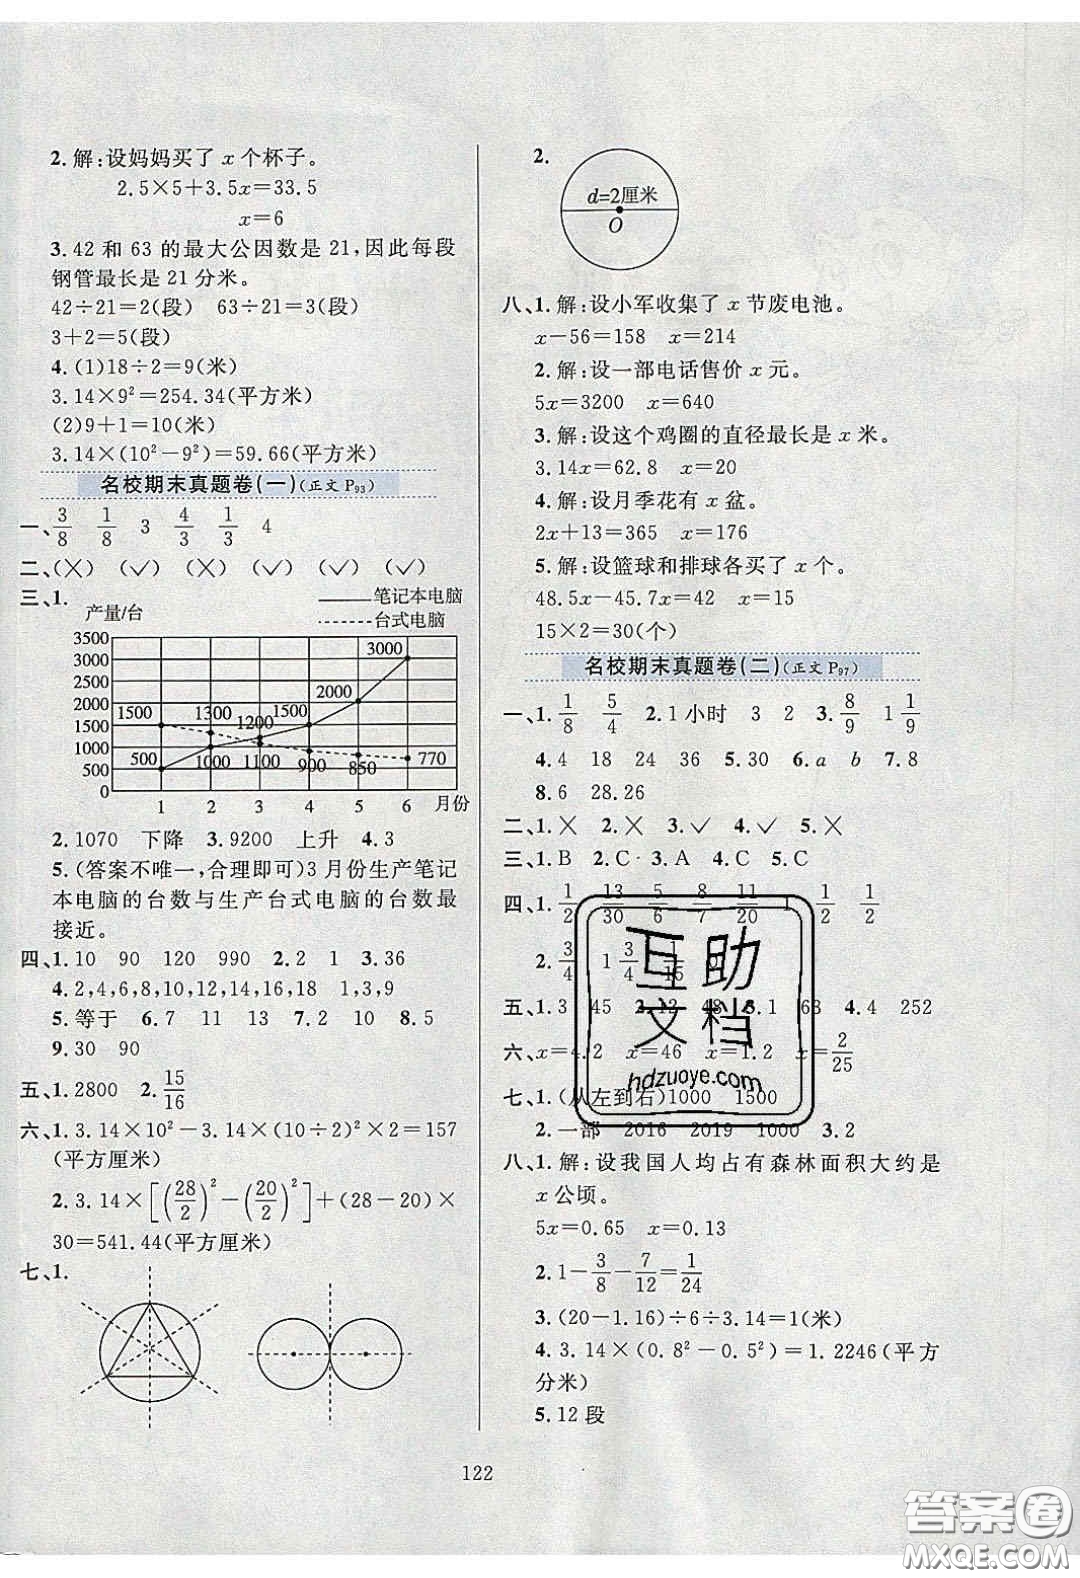 2.解:设妈妈买了 x 个杯子。
2.5×5+3.5x=33.5
x=6
3.42 和 63 的最大公因数是 21,因此每段
钢管最长是 21 分米。
42÷21=2(段)　63÷21=3(段)
3+2=5(段)
4.(1)18÷2=9(米)
3.14×9²=254.34(平方米)
(2)9+1=10(米)
3.14×(10²-9²)=59.66(平方米)
名校期末真题卷(一)(正文 P93)
一、3/8　1/8　3　4/3　1/3　4
二、(×)　(√)　(×)　(√)　(√)　(√)
三、1.
笔记本电脑
产量/台　台式电脑
3500
3000　3000
2500
2000　2000
1500　1500　1300　1200　1500
1000　1000　1100　900　850　770
500　500
0
1　2　3　4　5　6　月份
2.1070　下降　3.9200　上升　4.3
5.(答案不唯一,合理即可)3 月份生产笔记
本电脑的台数与生产台式电脑的台数最
接近。
四、1.10　90　120　990　2.2　1　3.36
4.2,4,6,8,10,12,14,16,18　1,3,9
5.等于　6.7　11　13　7.2　10　8.5
9.30　90
五、1.2800　2.15/16
六、1.3.14×10²-3.14×(10÷2)²×2=157
(平方厘米)
2.3.14×[(28/2)²-(20/2)²]+(28-20)×
30=541.44(平方厘米)
七、1.
2.
d=2厘米
O
八、1.解:设小军收集了 x 节废电池。
x-56=158　x=214
2.解:设一部电话售价 x 元。
5x=3200　x=640
3.解:设这个鸡圈的直径最长是 x 米。
3.14x=62.8　x=20
4.解:设月季花有 x 盆。
2x+13=365　x=176
5.解:设篮球和排球各买了 x 个。
48.5x-45.7x=42　x=15
15×2=30(个)
名校期末真题卷(二)(正文 P97)
一、1.1/8　5/4　2.1 小时　3　2　3.8/9　1 1/9
4.4　18　24　36　5.30　6.a　b　7.8
8.6　28.26
二、1.×　2.×　3.√　4.√　5.×
三、1.B　2.C　3.A　4.C　5.C
四、1.1/2　13/30　5/6　8/7　11/20　1　1/2　1/2
2.3/4　1 3/4　1/15
五、1.3　45　2.12　48　3.1　63　4.4　252
六、x=4.2　x=46　x=1.2　x=2/25
七、1.(从左到右)1000　1500
2.一部　2016　2019　1000　3.2
八、1.解:设我国人均占有森林面积大约是
x 公顷。
5x=0.65　x=0.13
2.1-3/8-7/12=1/24
3.(20-1.16)÷6÷3.14=1(米)
4.3.14×(0.8²-0.5²)=1.2246(平方
分米)
5.12 段
互助
文档
hdzuoye.com
122
答案圈
MXQE.COM